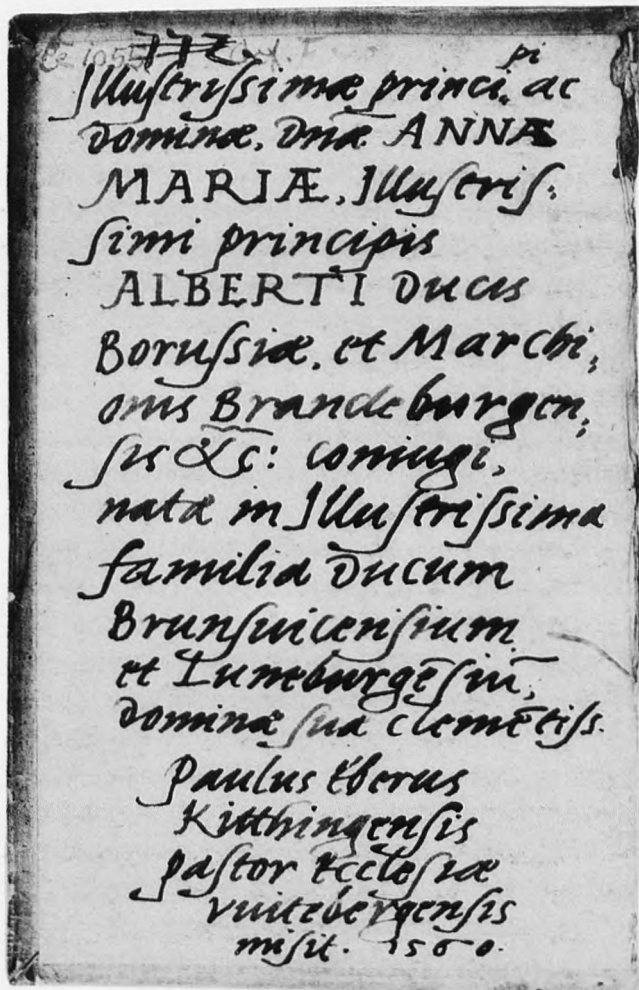 pi
Illustrissimæ princi, ac
dominæ, Dnæ ANNÆ
MARIÆ, Illustris:
simi principis
ALBERTI Ducis
Borussiæ, et Marchi,
onis Brandeburgen,
sis &c̄: coniugi,
natæ in Illustrissima
familia Ducum
Brunsuicensium
et Luneburgēsiū,
dominæ suæ clemētiss.
Paulus Eberus
Kitthingensis
pastor Ecclesiæ
vuitebergensis
misit. 1560.